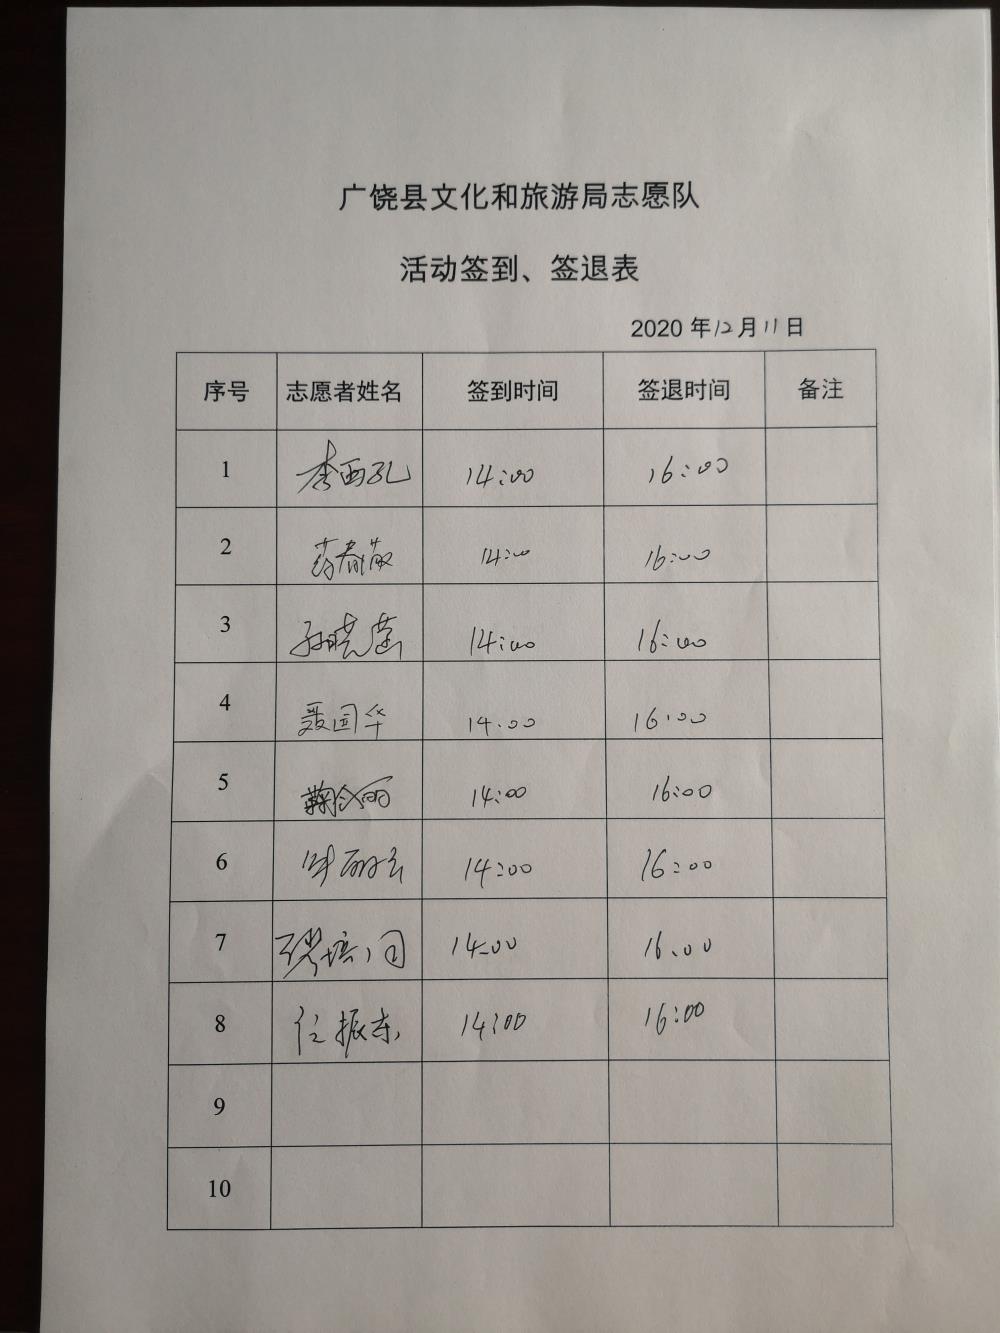 广饶县文化和旅游局志愿队
活动签到、签退表
2020 年12月11日
序号 志愿者姓名 签到时间 签退时间 备注
1 李西孔 14:00 16:00
2 14:00 16:00
3 孙晓蕾 14:00 16:00
4 聂国华 14:00 16:00
5 14:00 16:00
6 14:00 16:00
7 14:00 16:00
8 任振东 14:00 16:00
9
10